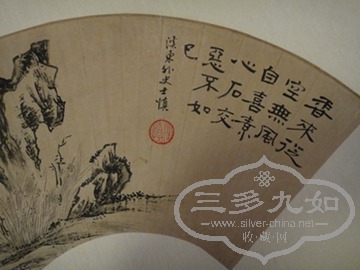 香來從
空無風
自喜素
心石交
惡不如
巳
溪東外史士慎
三多九如
www.silver-china.net
收·藏·网